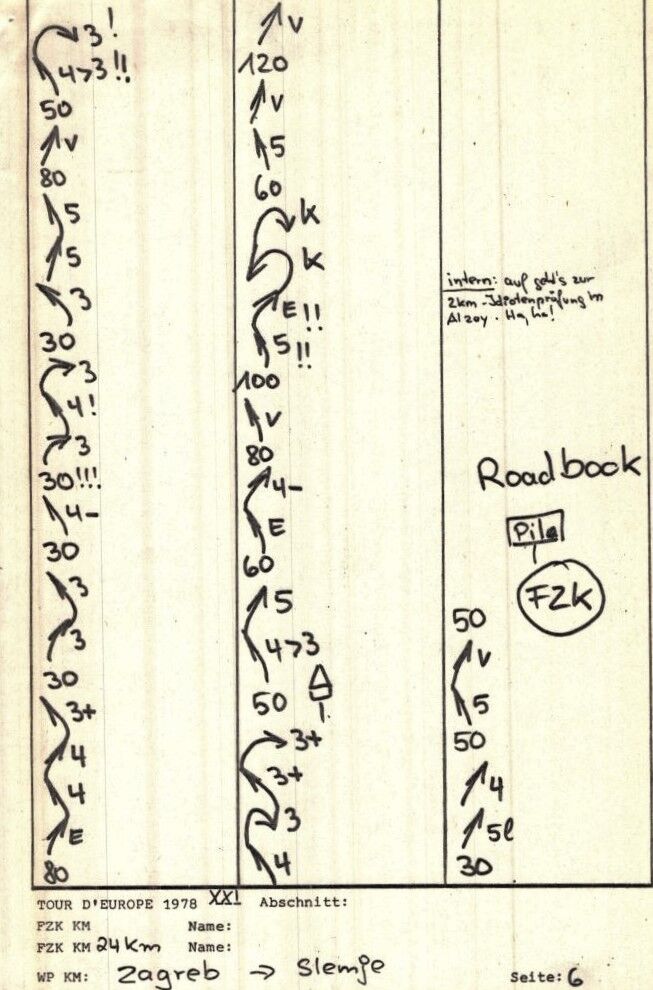 3!
4>3!!
50
v
80
5
5
3
30
3
4!
3
30!!!
4-
30
3
3
30
3+
4
4
E
80
v
120
v
5
60
k
k
E!!
5!!
100
v
80
4-
E
60
5
4>3
50
3+
3+
3
4
intern: auf geht's zur
2km-Idiotenprüfung in
Alzey. Ha, ha!
Roadbook
Pile
FZK
50
v
5
50
4
5l
30
TOUR D'EUROPE 1978 XXI Abschnitt:
FZK KM Name:
FZK KM 24km Name:
WP KM: Zagreb → Slemje Seite: 6